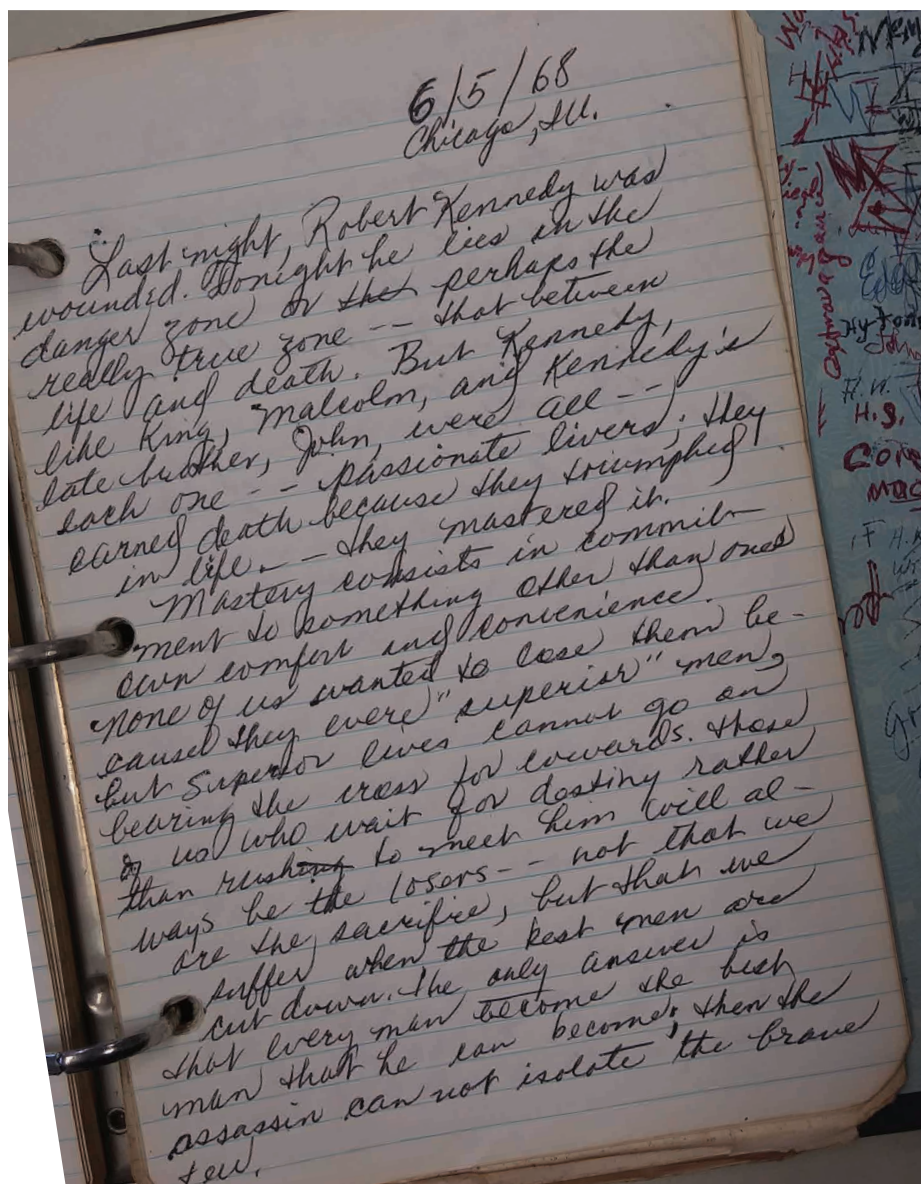 6/5/68
Chicago, Ill.
Last night, Robert Kennedy was
wounded. Tonight he lies in the
danger zone or the perhaps the
really true zone -- that between
life and death. But Kennedy,
like King, Malcolm, and Kennedy's
late brother, John, were all --
each one -- passionate livers; they
earned death because they triumphed
in life -- they mastered it.
Mastery consists in commit-
ment to something other than ones
own comfort and convenience.
None of us wanted to lose them be-
cause they were "superior" men,
but superior lives cannot go on
bearing the cross for cowards. Those
of us who wait for destiny rather
than rushing to meet him will al-
ways be the losers -- not that we
are the sacrifice, but that we
suffer when the best men are
cut down. The only answer is
that every man become the best
man that he can become; then the
assassin can not isolate the brave
few.
H.S.